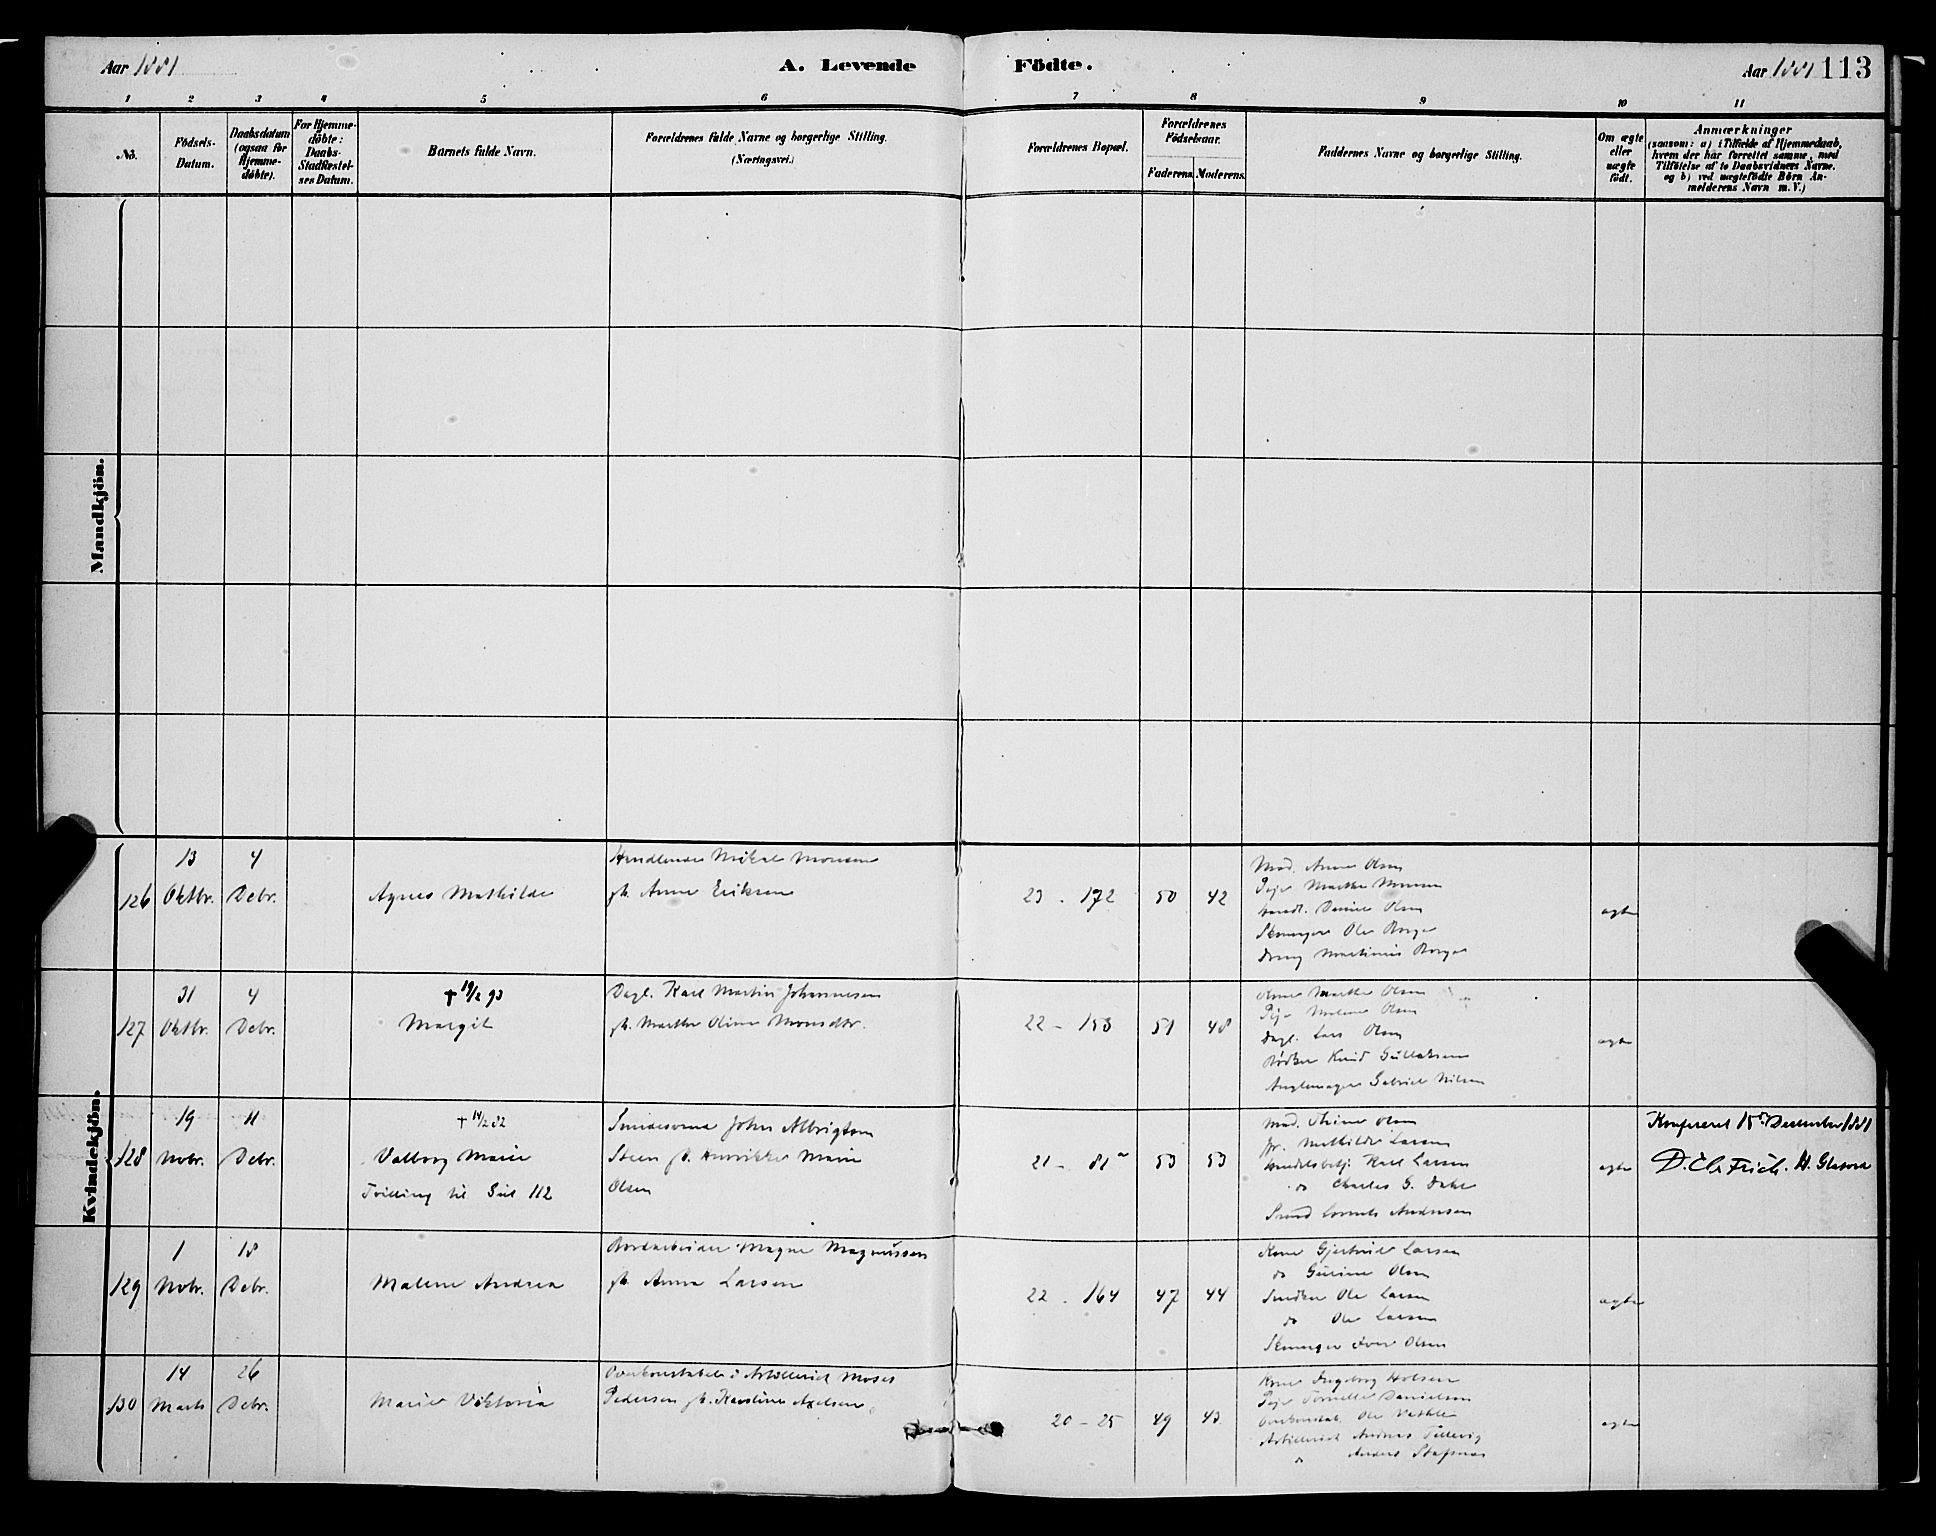 Aar 1881
A. Levende Födte.
Aar 1881 113
1 2 3 4 5 6 7 8 9 10 11
No.
Födsels-Datum.
Daabsdatum
(ogsaa for
Hjemme-
döbte).
For Hjemme-
döbte:
Daabs-
Stadfæstel-
ses Datum.
Barnets fulde Navn.
Forældrenes fulde Navne og borgerlige Stilling.
(Næringsvei.)
Forældrenes Bopæl.
Forældrenes
Födselsaar.
Faderens. Moderens.
Faddernes Navne og borgerlige Stilling.
Om ægte
eller
uægte
födt.
Anmærkninger
(saasom: a) i Tilfælde af Hjemmedaab,
hvem der har forrettet samme, med
Tilföielse af to Daabsvidners Navne.
og b) ved uægtefödte Börn An-
melderens Navn m.V.)
Mandkjön.
Kvindekjön.
126
13
Oktbr.
4
Debr.
Agnes Mathilde
Mikal Monsen
gb. Anne Eriksen
23 - 172
50
42
Mad. Anne Olsen
Pige Marthe Monsen
Handl. Daniel Olsen
Ole Borge
Martinus Borge
ægte
127
31
Oktbr.
4
Debr.
+ 19/2 93
Margit
Dagl. Karl Martin Johannesen
gb. Marthe Oline Monsdtr.
22 - 153
51
48
Kone Marthe Olsen
Pige Malene Olsen
Dagl. Lars Olsen
Bødker Knud Gullaksen
Gabriel Nilsen
ægte
128
19
Novbr.
11
Debr.
+ 14/2 82
Valborg Marie
Tvilling til Gut 112
John Albrigtsen
Steen gb. Henrikke Marie
Olsen
21 - 81
53
53
Mad. Oline Olsen
Fr. Mathilde Larsen
Handelsbetj. Karl Larsen
do Charles G. Dahl
Smed Cornels Andersen
ægte
Konfereret 15de December 1881
D. Chr. Frich. H. Glatved
129
1
Novbr.
18
Debr.
Malene Andrea
Magne Magnussen
gb. Anna Larsen
22 - 164
47
44
Kone Gjertrude Larsen
do Gurine Olsen
Snedker Ole Larsen
do Ole Larsen
Iver Olsen
ægte
130
14
Marts
26
Debr.
Marie Viktoria
Overkonstabel i Artilleriet Moses
Pedersen gb. Karoline Axelsen
20 - 25
49
43
Kone Ingeborg Holsen
Pige Danielsen
Overkonstab. Ole
Artillerist Andreas Tellevig
do Anders
ægte